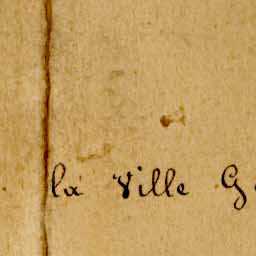 la Ville